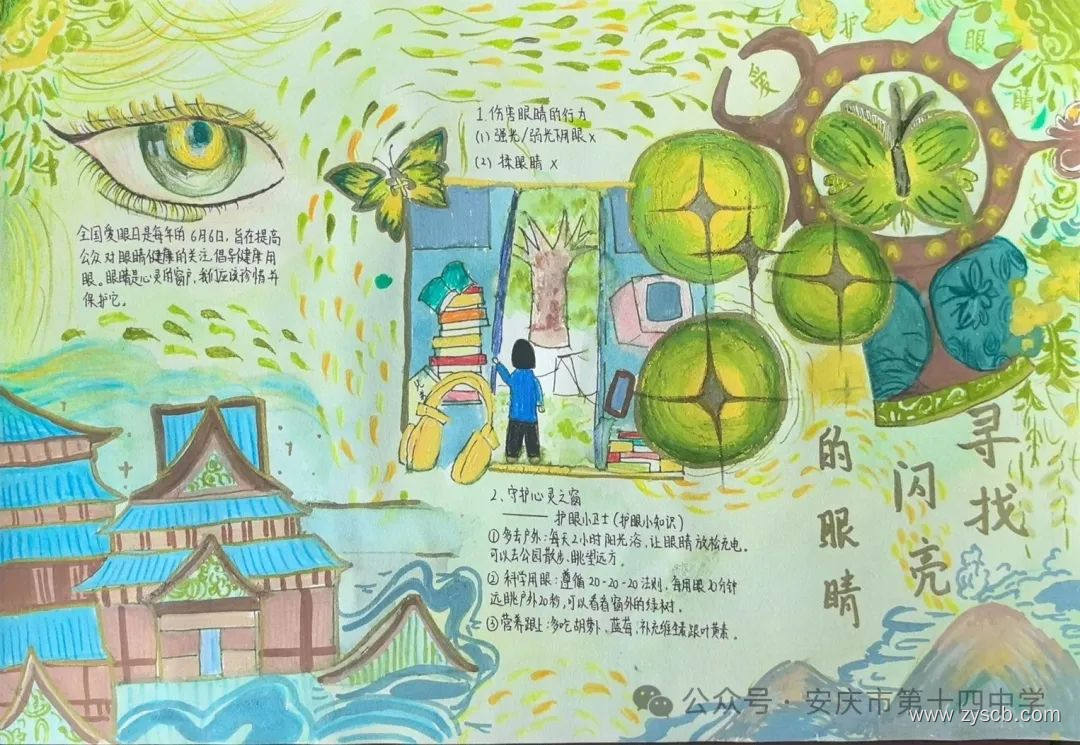 护
眼
睛
1.伤害眼睛的行为
(1) 强光/弱光用眼 x
(2) 揉眼睛 x
全国爱眼日是每年的6月6日,旨在提高
公众对眼睛健康的关注,倡导健康用
眼。眼睛是心灵的窗户,我们应该珍惜并
保护它。
寻找
闪亮
的眼睛
2、守护心灵之窗
——护眼小卫士(护眼小知识)
①多去户外:每天2小时阳光浴,让眼睛放松充电。
可以去公园散步、眺望远方。
②科学用眼:遵循20-20-20法则,每用眼20分钟
远眺户外20秒,可以看看窗外的绿树。
③营养跟上:多吃胡萝卜、蓝莓,补充维生素跟叶黄素。
公众号·安庆市第十四中学
www.zyscb.com